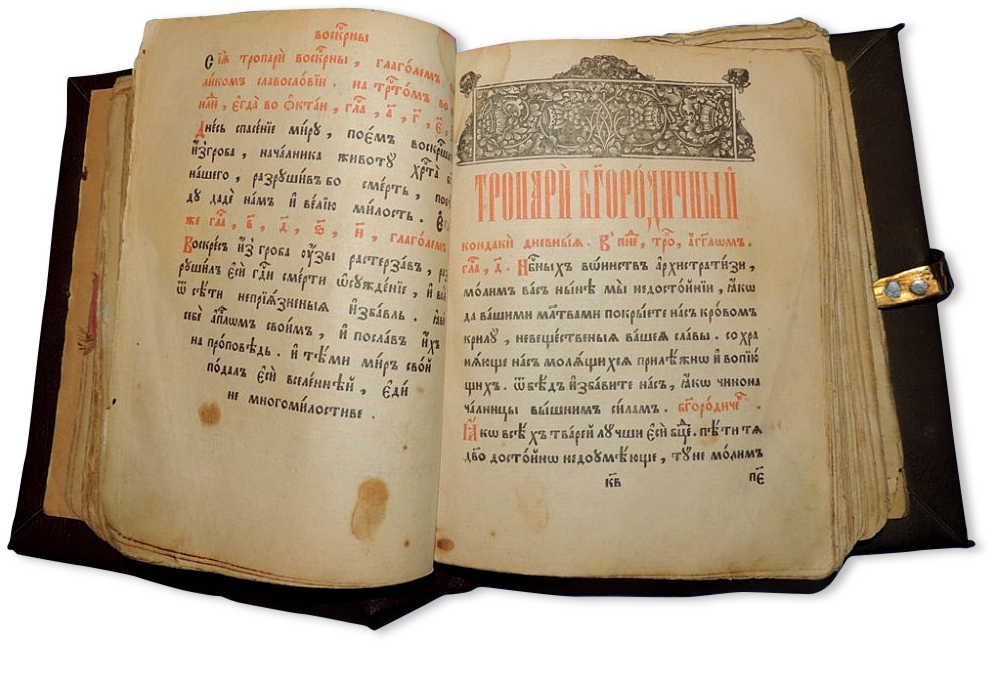 воскр҃ны
Сїѧ̀ тропарѝ воскр҃ны, глаго́лемъ
ли́комъ славосло́вїи. на тр҃то́мъ во
на́й, є҆гда̀ во ѻ҆кта́и, гла҃, а҃, г҃, є҃,
Дне́сь спасе́нїе ми́ру, пое́мъ воскр҃ша
и҆з̾гро́ба, нача́лника животꙋ̀ хр҃та̀
на́шего, разрꙋши́въ бо сме́рть,
дꙋ дадѐ на́мъ и҆ ве́лїю ми́лость.
же гла҃, в҃, д҃, ѕ҃, и҃, глаго́лемъ
Воскре́съ и҆з̾ гро́ба ᲂу҆́зы растерза́въ,
рꙋши́лъ є҆сѝ гдⷭ҇и сме́рти ѡ҆сꙋжде́нїе, и҆
ѿ сѣ́ти непрїѧ́зненыѧ и҆зба́вль.
себѐ а҆пⷭ҇лѡмъ свои́мъ, и҆ посла́въ и҆́хъ
на про́повѣдь. и҆ тѣ́ми ми́ръ сво́й
по́далъ є҆сѝ вселе́ннѣй, є҆ди́
не многоми́лостиве.
ТРОПАРЍ БГ҃ОРО́ДИЧНЫЙ
кондакѝ дне́вныѧ. в̾ пнⷣе, тро, а҆́гг҃лѡмъ.
гла҃, д҃. Нб҃ныхъ во́инствъ а҆рхистрати́зи,
мо́лимъ ва́съ ны́нѣ мы̀ недосто́йнїи, ꙗ҆́кѡ
да ва́шими мл҃твами покры́ете на́съ кро́вомъ
крилꙋ̀, невеще́ственыѧ ва́шеѧ сла́вы. сохра
нѧ́юще на́съ молѧ́щихсѧ прилѣ́жнѡ и҆ вопїю́
щихъ. ѿ бѣ́дъ и҆зба́вите на́съ, ꙗ҆́кѡ чинона
ча́лницы вы́шнимъ си́ламъ. бг҃оро́диче.
Ꙗ҆́кѡ всѣ́хъ тва́рей лꙋ́чши є҆сѝ бц҃е. пѣ́ти тѧ
дв҃о досто́йнѡ недоꙋмѣ́юще, тꙋ́не мо́лимъ
к҃в пс҃